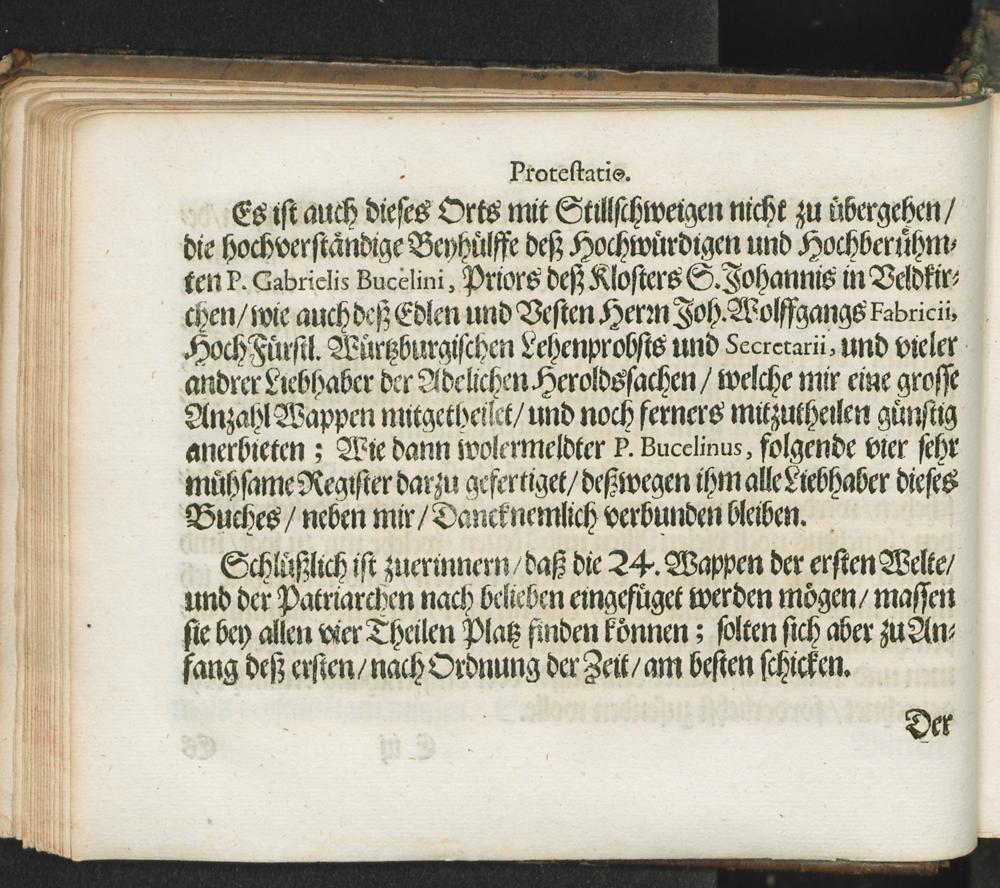 Protestatio.
Es ist auch dieses Orts mit Stillschweigen nicht zu übergehen/
die hochverständige Beyhülffe deß Hochwürdigen und Hochberühm-
ten P. Gabrielis Bucelini, Priors deß Klosters S. Johannis in Veldkir-
chen/ wie auch deß Edlen und Vesten Herrn Joh. Wolffgangs Fabricii,
HochFürstl. Würtzburgischen Lehenprobsts und Secretarii, und vieler
andrer Liebhaber der Adelichen Heroldssachen/ welche mir eine grosse
Anzahl Wappen mitgetheilet/ und noch ferners mitzutheilen günstig
anerbieten; Wie dann wolermeldter P. Bucelinus, folgende vier sehr
mühsame Register darzu gefertiget/ deßwegen ihm alle Liebhaber dieses
Buches/ neben mir/ Dancknemlich verbunden bleiben.
Schlüßlich ist zuerinnern/ daß die 24. Wappen der ersten Welte/
und der Patriarchen nach belieben eingefüget werden mögen/ massen
sie bey allen vier Theilen Platz finden können; solten sich aber zu An-
fang deß ersten/ nach Ordnung der Zeit/ am besten schicken.
Der